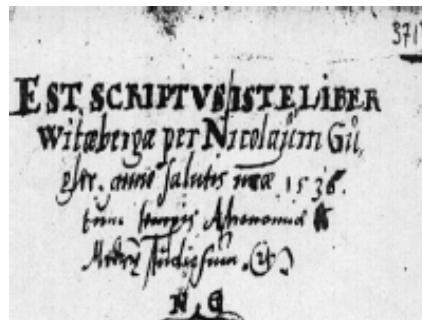 371
EST SCRIPTVS ISTE LIBER
Witæbergæ per Nicolaum Gu,
gler. anno salutis nr̃æ 1536.
tum temporis Astronomiæ
Medicæ Studiosum
N G